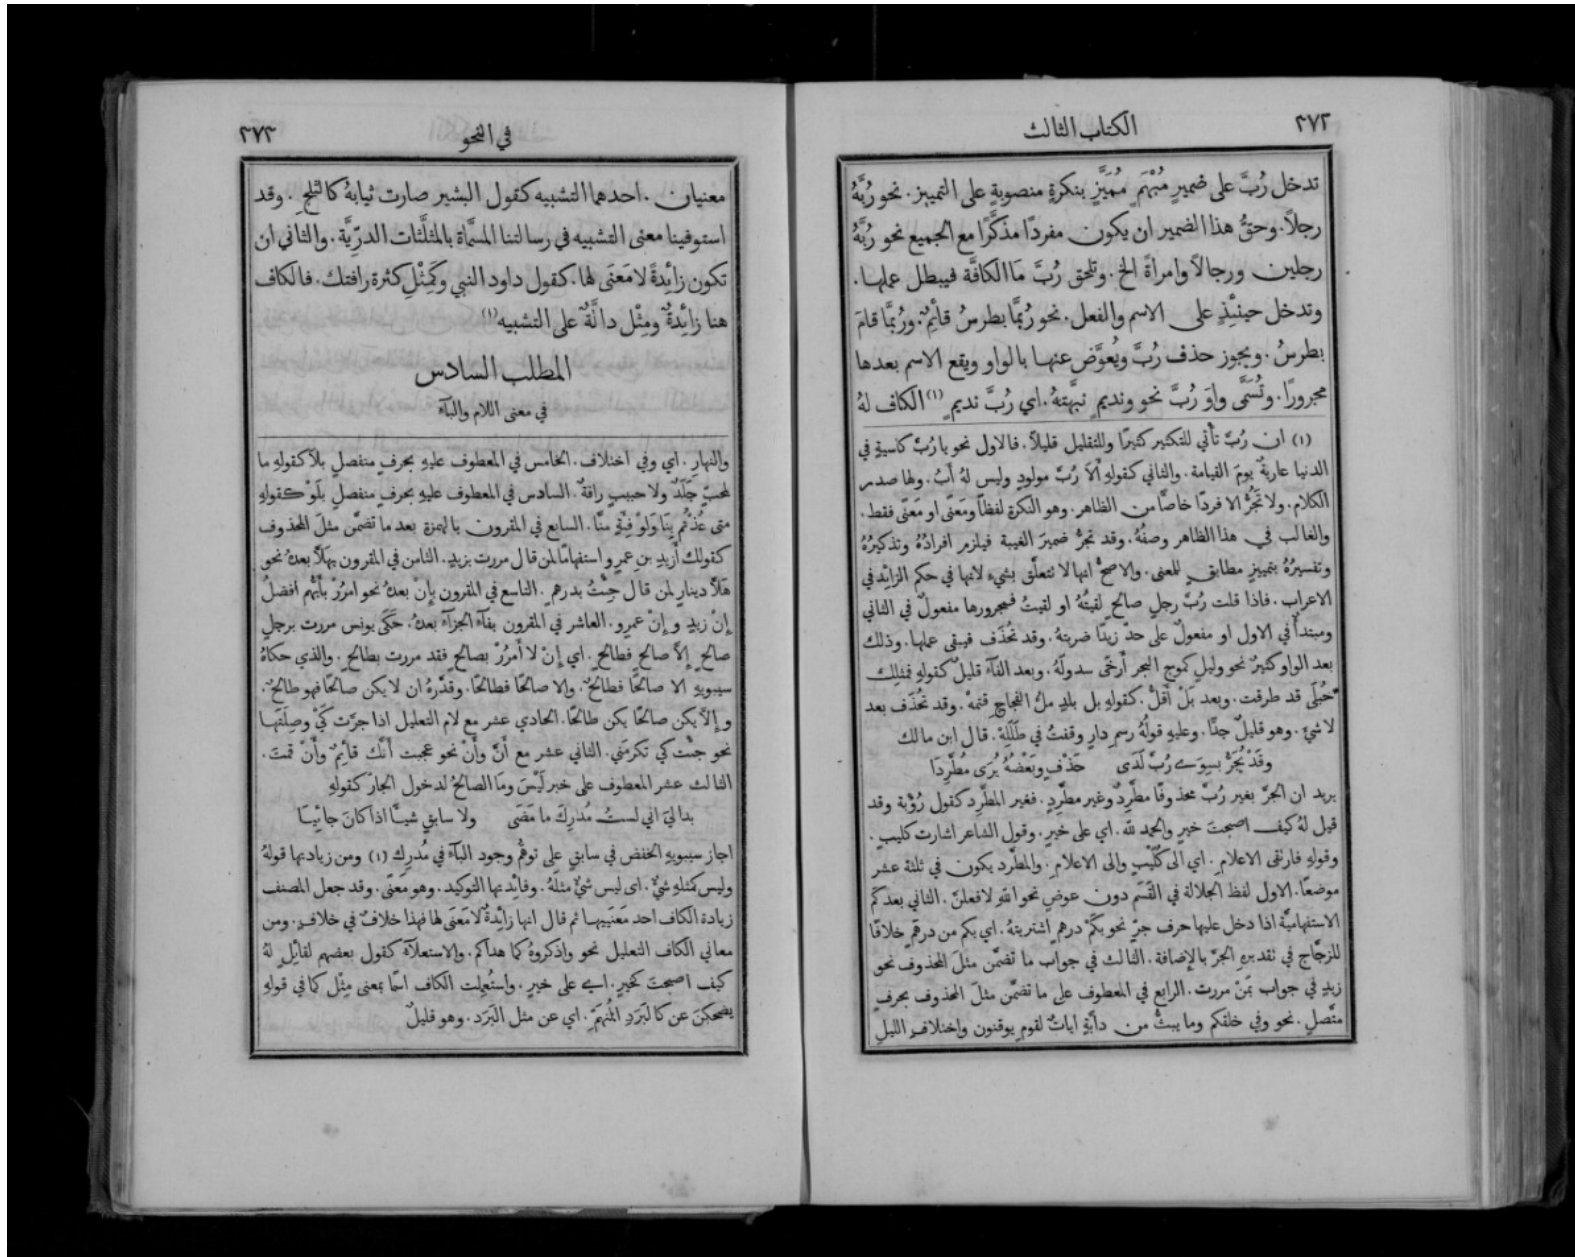 ٢٧٢ الكتاب الثالث
تدخل رُبَّ على ضميرٍ مُبْهَمٍ مُمَيَّزٍ بنكرةٍ منصوبةٍ على التمييز. نحو رُبَّهُ
رجلاً. وحقُّ هذا الضمير ان يكون مفردًا مذكَّرًا مع الجميع نحو رُبَّهُ
رجلين ورجالاً وامراةً الخ. وتلحق رُبَّ مَا الكافَّة فيبطل عملها.
وتدخل حينئِذٍ على الاسم والفعل. نحو رُبَّمَا بطرسُ قائِمٌ. ورُبَّمَا قامَ
بطرسُ. ويجوز حذف رُبَّ ويُعوَّض عنها بالواو ويقع الاسم بعدها
مجرورًا. وتُسَمَّى واوَ رُبَّ نحو ونديمٍ نبهَّتهُ. اي رُبَّ نديمٍ (١) الكاف لهُ
(١) ان رُبَّ تأتي للتكثير كثيرًا وللتقليل قليلاً. فالاول نحو يا رُبَّ كاسيةٍ في
الدنيا عاريةٌ يومَ القيامة. والثاني كقولهِ أَلاَ رُبَّ مولودٍ وليس لهُ أَبٌ. ولها صدر
الكلام. ولا تَجُرُّ الا فردًا خاصًّا من الظاهر. وهو النكرة لفظًا ومَعنًى او مَعنًى فقط.
والغالب في هذا الظاهر وصفُهُ. وقد تجرُّ ضميرَ الغيبة فيلزم افرادُهُ وتذكيرُهُ
وتفسيرُهُ بتمييزٍ مطابقٍ للمعنى. والاصحُّ انها لا تتعلَّق بشيءٍ لانها في حكم الزائِد في
الاعراب. فاذا قلت رُبَّ رجلٍ صالحٍ لقيتُهُ او لقيتُ فمجرورها مفعولٌ في الثاني
ومبتدأٌ في الاول او مفعولٌ على حدّ زيدًا ضربتهُ. وقد تُحذَف فيبقى عملها. وذلك
بعد الواو كثيرٌ نحو وليلٍ كموجِ البحرِ أَرخَى سدولَهُ. وبعد الفآء قليلٌ كقولهِ فمثلِك
حُبْلَى قد طرقت. وبعد بَلْ أَقلُّ. كقولهِ بل بلدٍ ملُ الفجاجِ قتمُهْ. وقد تُحذَف بعد
لا شيءَ. وهو قليلٌ جدًّا. وعليهِ قولُهُ رسمِ دارٍ وقفتُ في طَلَلِهْ. قال ابن مالك
وقَدْ يُجَرُّ بسِوَى رُبَّ لَدَى حَذْفٍ وبَعْضُهُ يُرَى مُطَّرِدَا
يريد ان الجرَّ بغير رُبَّ محذوفًا مطَّرِدٌ وغير مطَّرِدٍ. فغير المطَّرِد كقول رُؤْبة وقد
قيل لهُ كيف اصبحتَ خيرٍ والحمد لله. اي على خيرٍ. وقول الشاعر اشارت كليبٍ.
وقولهِ فارتقى الاعلامِ. اي الى كُلَيْبٍ والى الاعلامِ. والمطَّرد يكون في ثلثة عشر
موضعًا. الاول لفظ الجلالة في القَسَم دون عوضٍ نحو اللهِ لافعلنَّ. الثاني بعد كَم
الاستفهاميَّة اذا دخل عليها حرف جرٍّ نحو بكَمْ درهمٍ اشتريتهُ. اي بكم من درهمٍ خلافًا
للزجَّاج في تقديرهِ الجرَّ بالإضافة. الثالث في جواب ما تضمَّن مثلَ المحذوف نحو
زيدٍ في جواب بمَنْ مررت. الرابع في المعطوف على ما تضمَّن مثلَ المحذوف بحرفٍ
متَّصلٍ. نحو وفي خلقكم وما يبثُّ من دابَّةٍ اياتٌ لقومٍ يوقنون واختلافِ الليل
في النحو ٢٧٣
معنيان. احدهما التشبيه كقول البشير صارت ثيابهُ كالثلجِ. وقد
استوفينا معنى التشبيه في رسالتنا المسمَّاة بالمثلَّثات الدرِّيَّة. والثاني ان
تكون زائِدةً لا مَعنَى لها. كقول داود النبي وكَمِثْلِ كثرة رافتك. فالكاف
هنا زائِدةٌ ومِثْل دالَّةٌ على التشبيه (١)
المطلب السادس
في معنى اللام والبآء
والنهارِ. اي وفي اختلاف. الخامس في المعطوف عليهِ بحرفٍ منفصلٍ بلا كقولهِ ما
لمحبٍّ جَلَدٌ ولا حبيبٍ رافةٌ. السادس في المعطوف عليهِ بحرفٍ منفصلٍ بلَوْ كقولهِ
متى عُذْتُم بِنَا وَلوْ فِئَةٍ مِنَّا. السابع في المقرون بالهمزة بعد ما تضمَّن مثلَ المحذوف
كقولك أَزيدِ بنِ عمرٍو استفهامًا لمن قال مررت بزيدٍ. الثامن في المقرون بهَلاَّ بعدهُ نحو
هَلاَّ دينارٍ لمن قال جِئْتُ بدرهمٍ. التاسع في المقرون بإنْ بعدهُ نحو امرُرْ بأَيِّهم افضلُ
إنْ زيدٍ وإنْ عمرٍو. العاشر في المقرون بفآء الجزآء بعدهُ. حَكَى يونس مررت برجلٍ
صالحٍ إلاَّ صالحٍ فطالحٍ. اي إنْ لا أمرُرْ بصالحٍ فقد مررت بطالحٍ. والذي حكاهُ
سيبويهِ الا صالحًا فطالحٌ. والا صالحًا فطالحًا. وقدَّرهُ ان لا يكن صالحًا فهو طالحٌ.
وإلاَّ يكن صالحًا يكن طالحًا. الحادي عشر مع لام التعليل اذا جرَّت كَيْ وصِلَتَهَا
نحو جئْت كي تكرمَني. الثاني عشر مع أَنَّ وأَنْ نحو عجبت أَنَّك قائِمٌ وأَنْ قمتَ.
الثالث عشر المعطوف على خبر لَيْسَ وما الصالحُ لدخول الجارّ كقولهِ
بدا ليَ اني لستُ مُدرِكَ ما مَضَى ولا سابقٍ شيـًٔا اذا كانَ جائِيَا
اجاز سيبويهِ الخفض في سابقٍ على توهُّم وجود البآء في مُدرِك (١) ومن زيادتها قولهُ
وليس كمثلهِ شيءٌ. اي ليس شيءٌ مثلَهُ. وفائِدتها التوكيد. وهو مَعنًى. وقد جعل المصنف
زيادة الكاف احد مَعنَيَيها ثم قال انها زائِدةٌ لا مَعنَى لها فهذا خلافٌ في خلافٍ. ومن
معاني الكاف التعليل نحو واذكروهُ كما هداكم. والاستعلآء كقول بعضهم لقائِلٍ لهُ
كيف اصبحتَ كخيرٍ. اي على خيرٍ. واستُعمِلت الكاف اسمًا بمعنى مِثْل كما في قولهِ
يضحكنَ عن كالبَرَدِ المُنْهَمِّ. اي عن مثل البَرَد. وهو قليلٌ